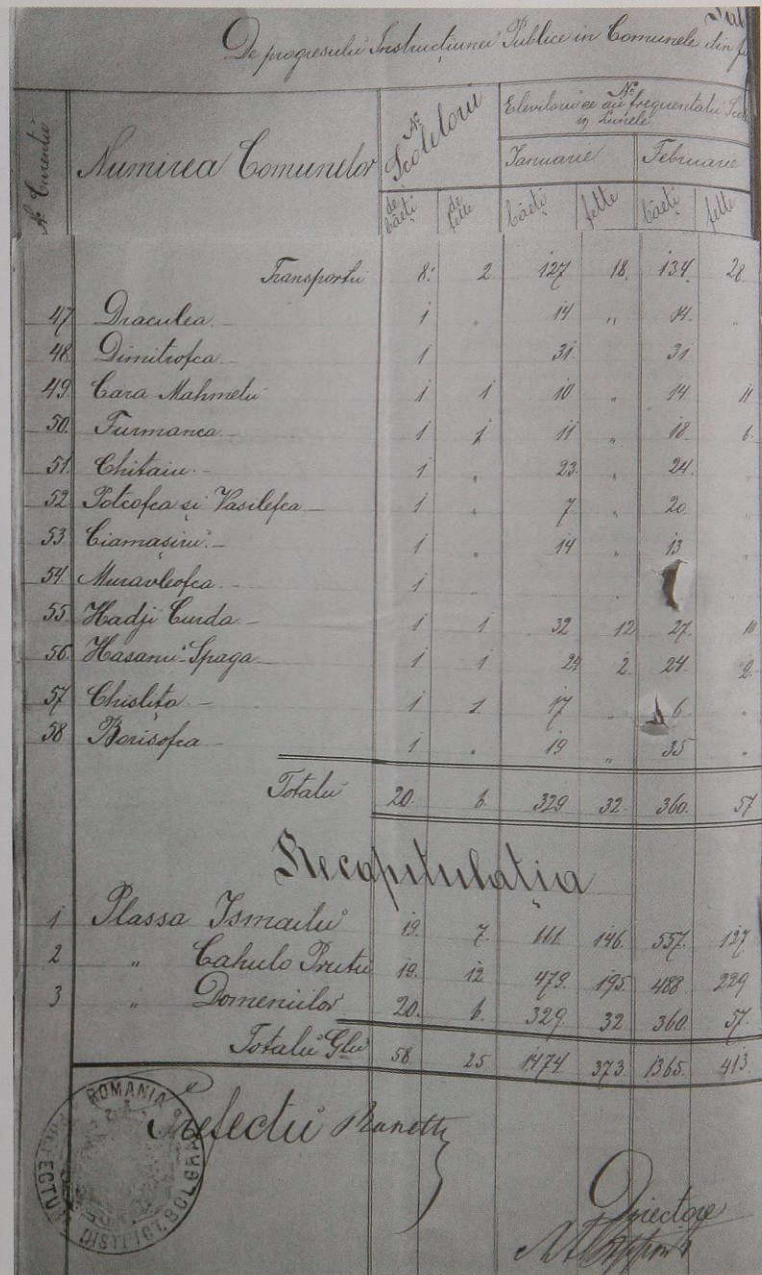 De progresulu Instrucțiunei Publice in Comunele din
No Curentu
Numirea Comunelor
No Scóleloru
No Eleviloru ce au frequentatu
in Lunele
Ianuarie Februarie
de băeți de fette băeți fette băeți fette
Transportu 8. 2 127 18. 134. 28
47 Draculea 1 " 14 " 14. "
48. Dimitrofca 1 31. 31
49 Cara Mahmetu 1 1 10 " 14 11
50. Furmanca 1 1 11 " 18. 6.
51. Chitaiu 1 " 23. " 24.
52 Potcofca si Vasilefca 1 " 7 " 20. "
53 Ciamașiru 1 " 14 " 13 "
54 Muravleofca 1
55 Hadji Curda 1 1 32 12 27.
56 Hasanu-Spaga 1 1 24 2. 24 2.
57 Chislița 1 1 17 " 6 "
58 Borisofca 1 " 19 " 35 "
Totalu 20. 6. 329 32. 360. 57
Recapitulația
1 Plassa Ismailu 19. 7. 146. 557. 127
2 " Cahulo Prutu 19. 12 479. 195 488 229
3 " Domeniilor 20. 6. 329. 32 360. 57.
Totalu Glu 58 25 1474. 373 1365. 413.
ROMANIA
DISTRICT. BOLGRAD
Prefectu
Directore